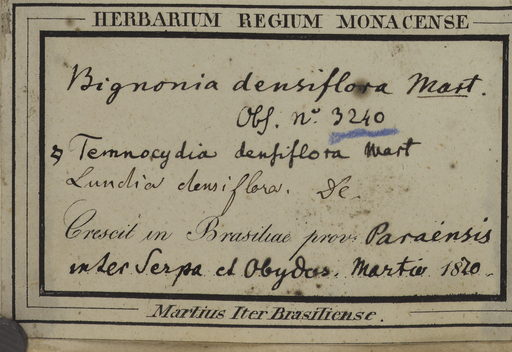 HERBARIUM REGIUM MONACENSE
Bignonia densiflora Mart.
Obs. n° 3240
Temnocydia densiflora Mart
Lundia densiflora. Dc.
Crescit in Brasiliae prov. Paraënsis
inter Serpa et Obydos. Martio 1820.
Martius Iter Brasiliense.